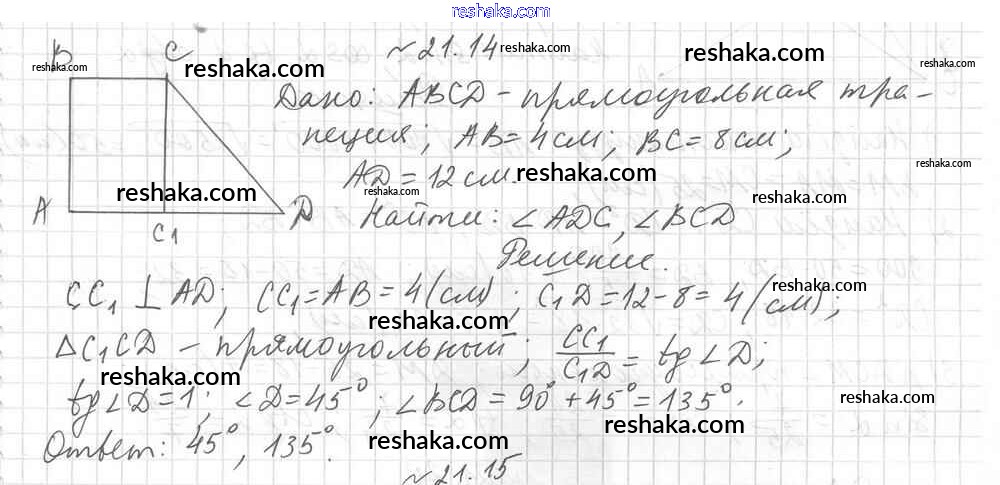 reshaka.com
№ 21.14 reshaka.com
B C reshaka.com reshaka.com
reshaka.com
Дано: ABCD – прямоугольная тра-
пеция; AB = 4 см; BC = 8 см;
reshaka.com reshaka.com
AD = 12 см.
reshaka.com reshaka.com reshaka.com
A C1 D Найти: ∠ADC, ∠BCD
Решение.
reshaka.com
CC1 ⊥ AD; CC1 = AB = 4 (см); C1D = 12 – 8 = 4 (см);
reshaka.com
△C1CD – прямоугольный; CC1/C1D = tg∠D;
reshaka.com
tg∠D = 1; ∠D = 45°; ∠BCD = 90° + 45° = 135°.
reshaka.com reshaka.com
Ответ: 45°, 135°.
reshaka.com
№ 21.15